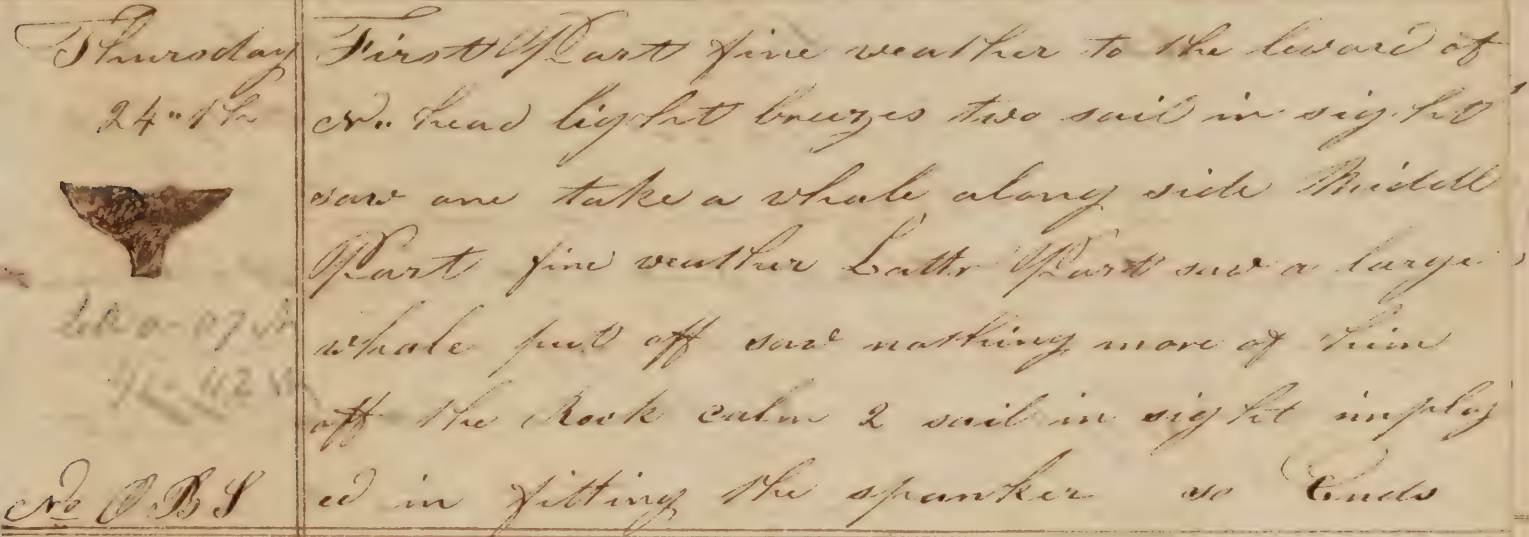 Thursday
24"th
No OBS
First Part fine weather to the leward of
N. head light breezes two sail in sight
saw one take a whale along side Middl
Part fine weather Lattr Part saw a large
whale put off saw nothing more of him
off the Rock calm 2 sail in sight imploy
ed in fitting the spanker so Ends